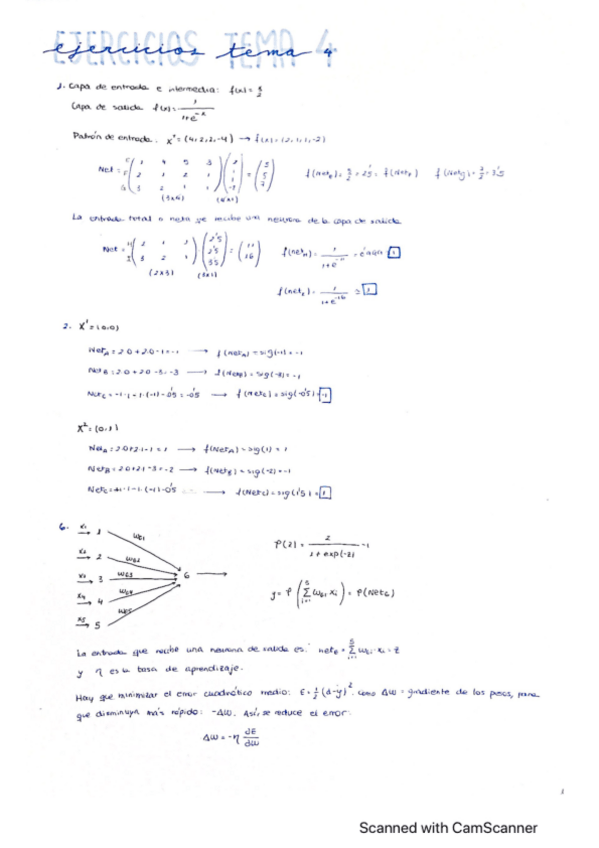 EJERCICIOS TEMA 4
ejercicios tema 4
1. Capa de entrada e intermedia: f(x) = x/2
Capa de salida f(x) = 1/(1+e^-x)
Patrón de entrada: x' = (4,2,2,-4) → f(x) = (2,1,1,-2)
Net =
1 4 5 3
2 1 2 1
3 2 1 1
(3x4) (4x1)
f(Net_E) = 5/2 = 2'5 = f(Net_F) f(Net_G) = 7/2 = 3'5
La entrada total o neta que recibe una neurona de la capa de salida
Net = H I
2 1 1
3 2 1
2'5
2'5
3'5
=
11
16
(2x3) (3x1)
f(net_H) = 1/(1+e^-11) = 0'999 1
f(net_I) = 1/(1+e^-16) = 1
2. X¹ = (0,0)
Net_A = 2·0 + 2·0 - 1 = -1 → f(Net_A) = sig(-1) = -1
Net_B = 2·0 + 2·0 - 3 = -3 → f(Net_B) = sig(-3) = -1
Net_C = -1·1 - 1·(-1) - 0'5 = -0'5 → f(Net_C) = sig(-0'5) = -1
X² = (0,1)
Net_A = 2·0 + 2·1 - 1 = 1 → f(Net_A) = sig(1) = 1
Net_B = 2·0 + 2·1 - 3 = -2 → f(Net_B) = sig(-2) = -1
→ f(Net_C) = sig(1'5) = 1
6. x1 → 1 w61
x2 → 2 w62
x3 → 3 w63 6 →
x4 → 4 w64
x5 → 5 w65
P(z) = 2/(1 + exp(-z)) - 1
y = P(∑ w6i xi) = P(Net6)
La entrada que recibe una neurona de salida es: net6 = ∑ w6i · xi = z
y η es la tasa de aprendizaje.
Hay que minimizar el error cuadrático medio: E = 1/2 (d-y)². Como ΔW = gradiente de los pesos, para
que disminuya más rápido: -ΔW. Así, se reduce el error:
ΔW = -η dE/dW
1
Scanned with CamScanner